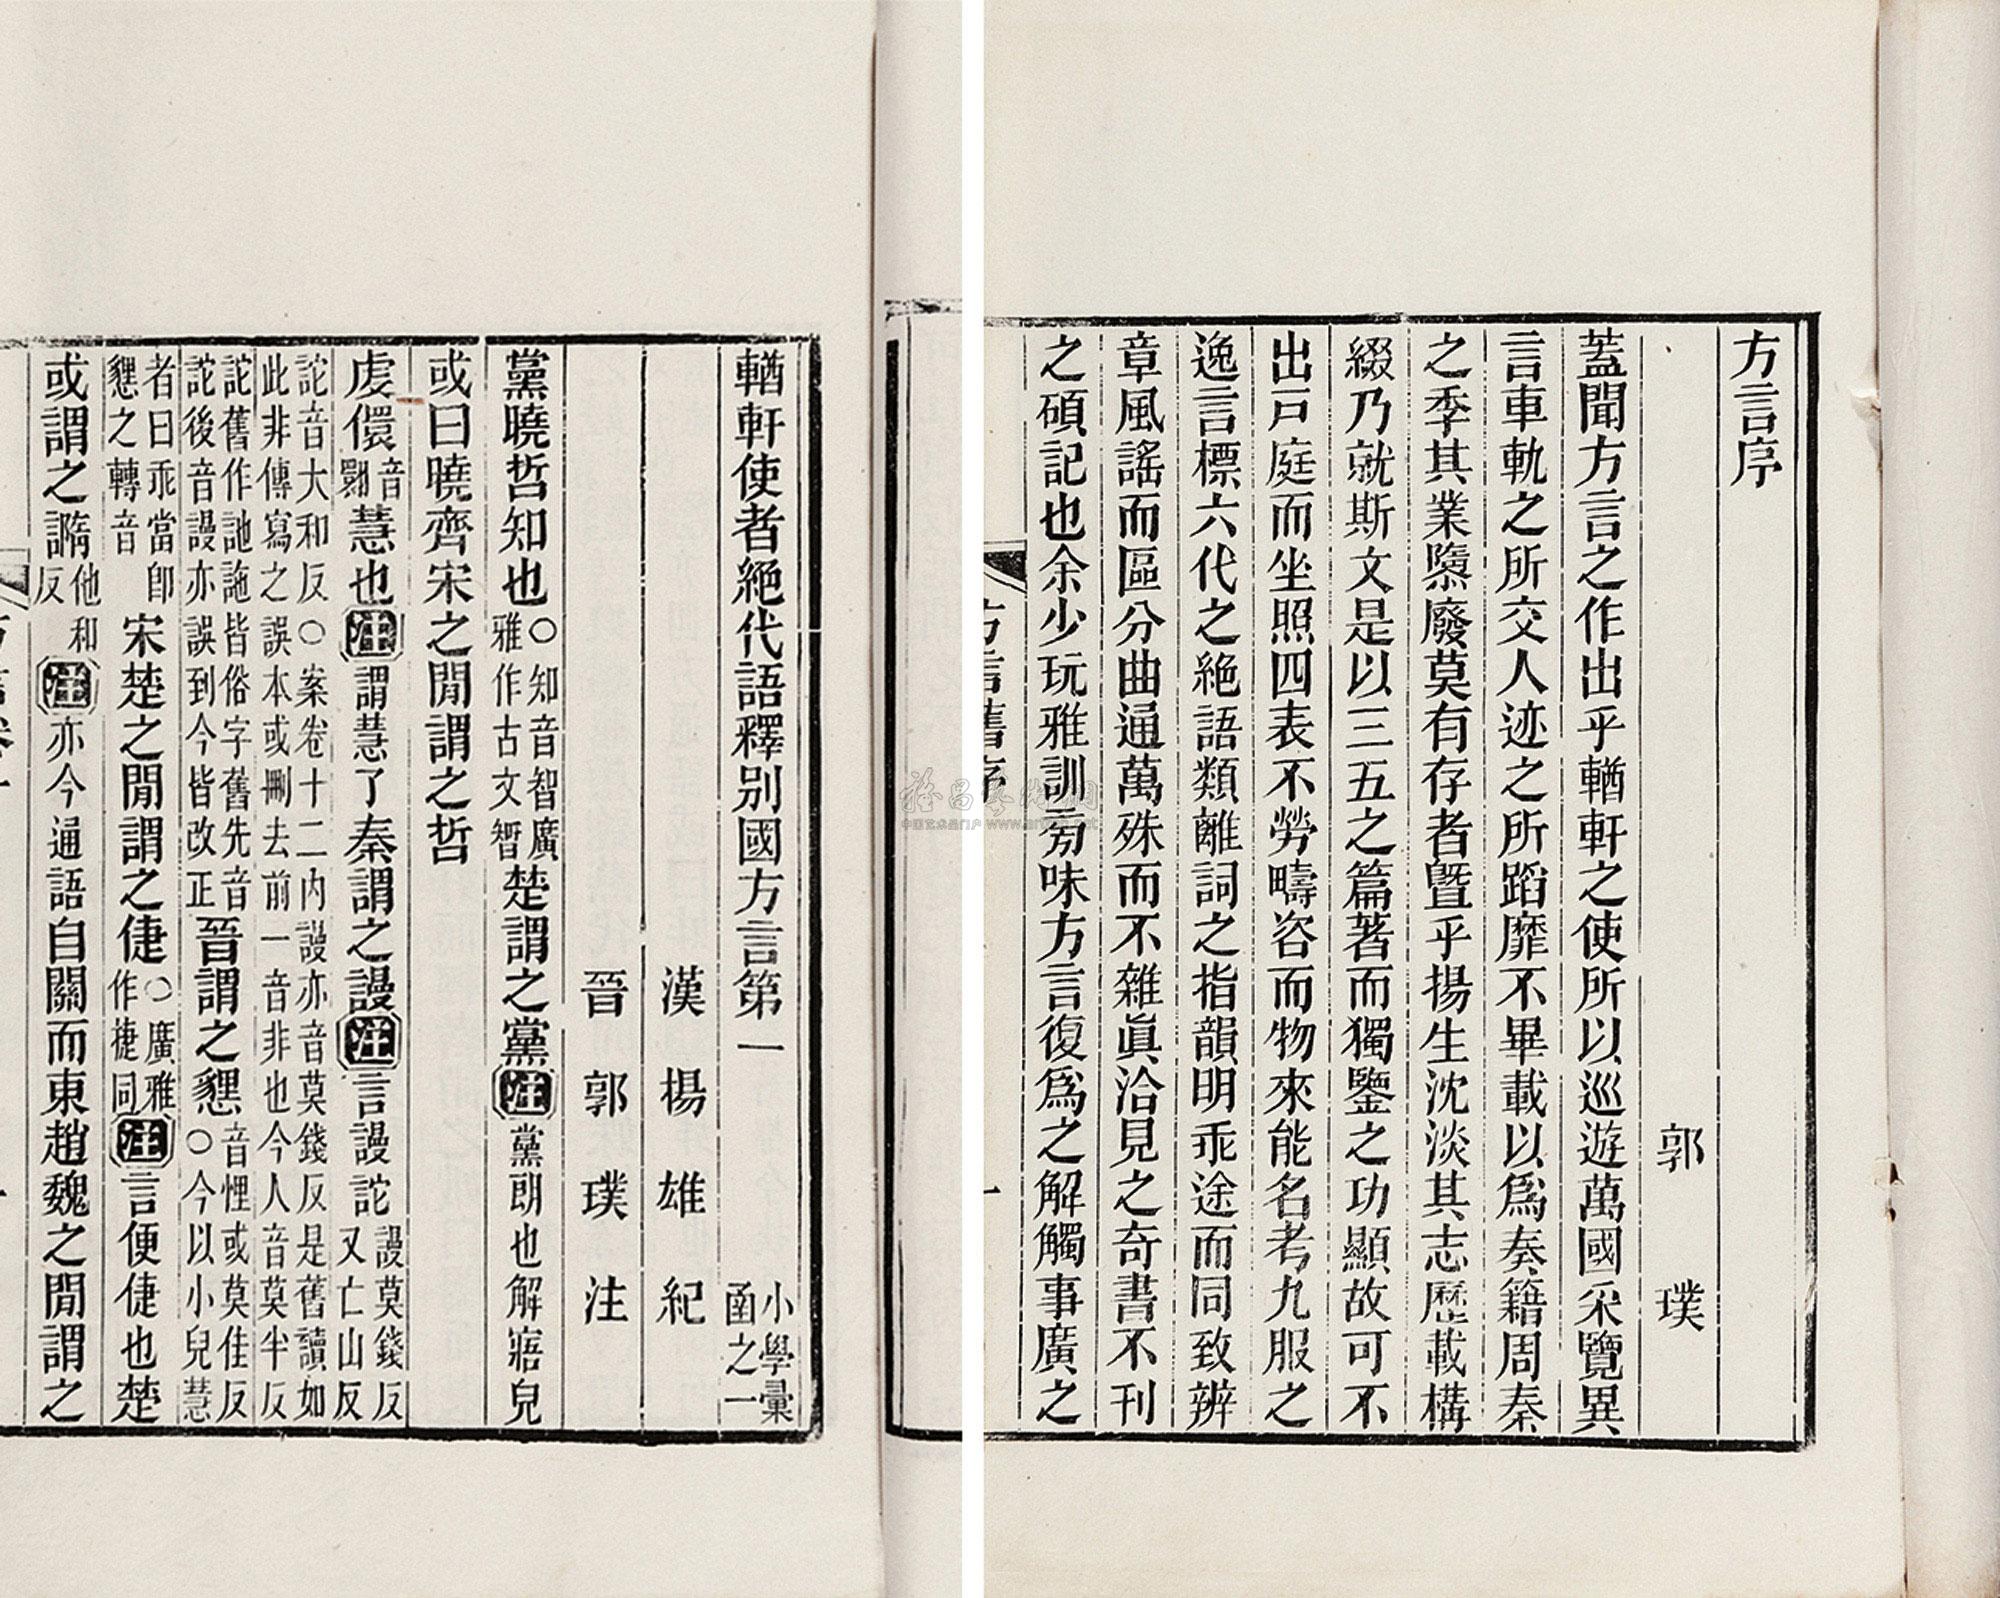 方言序
郭璞
蓋聞方言之作出乎輶軒之使所以巡遊萬國采覽異
言車軌之所交人迹之所蹈靡不畢載以爲奏籍周秦
之季其業隳廢莫有存者曁乎揚生沈淡其志歷載構
綴乃就斯文是以三五之篇著而獨鑒之功顯故可不
出戸庭而坐照四表不勞疇咨而物來能名考九服之
逸言標六代之絶語類離詞之指韻明乖途而同致辨
章風謠而區分曲通萬殊而不雜眞洽見之奇書不刊
之碩記也余少玩雅訓㫄味方言復爲之解觸事廣之
方言舊序
一
輶軒使者絶代語釋別國方言第一
小學彙
函之一
漢揚雄紀
晉郭璞注
黨曉哲知也
○知音智廣
雅作古文𥏼
楚謂之黨注黨朗也解寤皃
或曰曉齊宋之閒謂之哲
虔儇
音
翾
慧也注謂慧了秦謂之謾注言謾詑
謾莫錢反
又亡山反
詑音大和反○案卷十二内謾亦音莫錢反是舊讀如
此非傳寫之誤本或刪去前一音非也今人音莫半反
詑舊作訑訑皆俗字舊先音
詑後音謾亦誤到今皆改正
晉謂之㦟
音悝或莫佳反
○今以小兒慧
者曰乖當卽
㦟之轉音
宋楚之閒謂之倢
○廣雅
作㨗同
注言便倢也楚
或謂之䜏
他和
反
注亦今通語自關而東趙魏之閒謂之